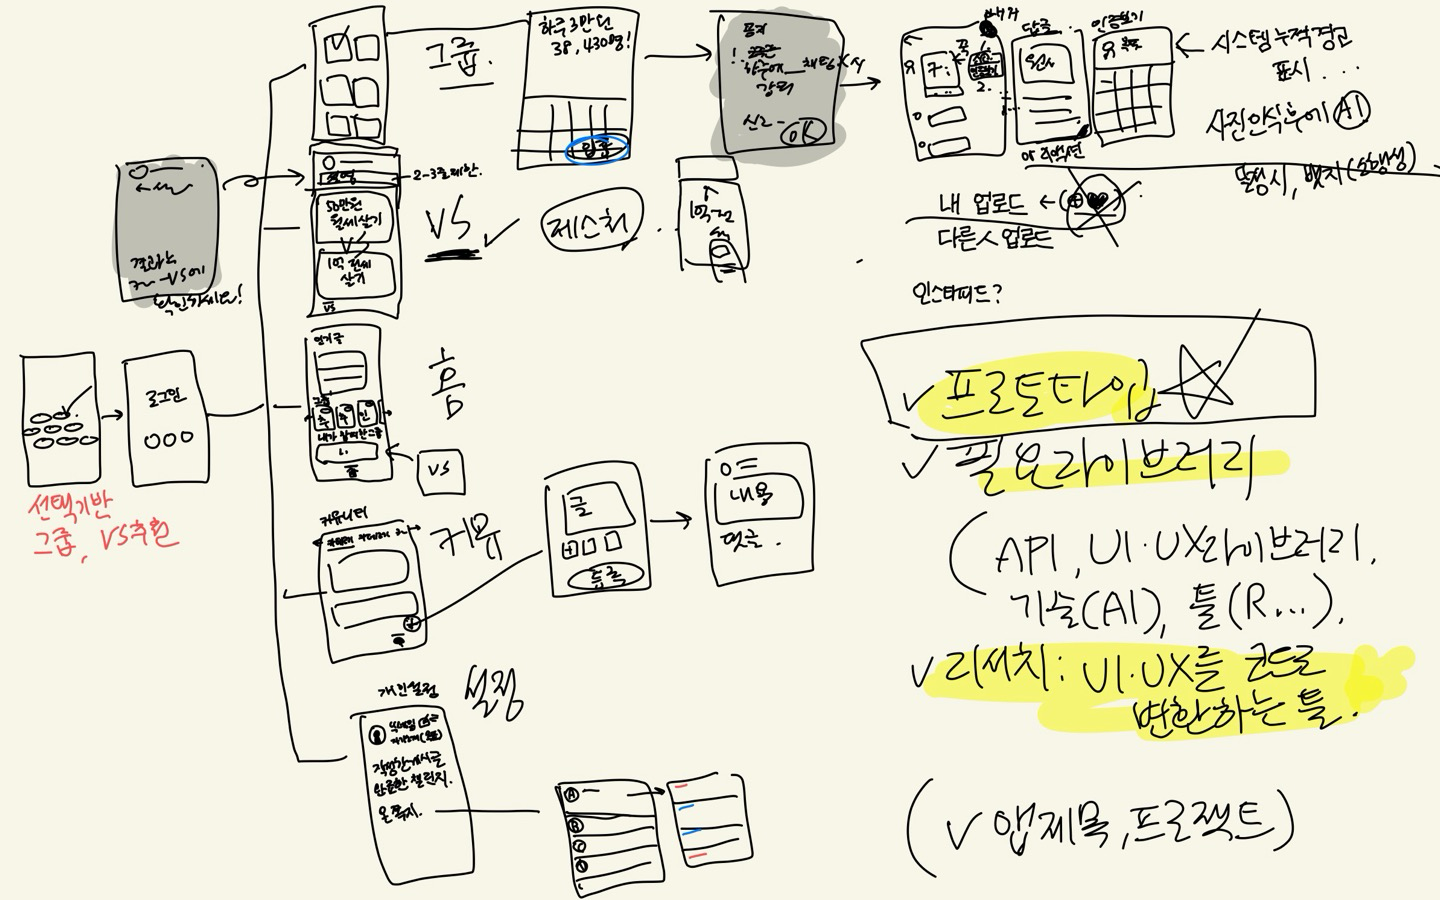 그룹.
하루 3만 원
38,430명!
입금
공지
하루에
채팅 X, 시
강퇴
OK
내꺼
답글
원시
인증보기
시스템 누적 경고
표시...
사진인식후에 AI
아 리액션
내 업로드 ←
다른 人 업로드
인스타피드?
설명
2-3줄 제한.
50만원
월세살기
VS
1억 전세
살기
VS
VS
제스처
1억 전
결과는
VS에
확인하세요!
로그인
선택기반
그룹, VS추천
인기글
그룹
내가 참여한 그룹
홈
VS
커뮤니티
커뮤
글
등록
내용
댓글.
개인설정
설정
작성한 게시글
완료한 챌린지.
온 쪽지.
A
✓ 프로토타입
✓ 필요라이브러리
(API, UI·UX라이브러리,
기술(AI), 툴(R...).
✓ 리서치: UI·UX를 코드로
변환하는 툴!
(✓ 앱제목, 프로젝트)